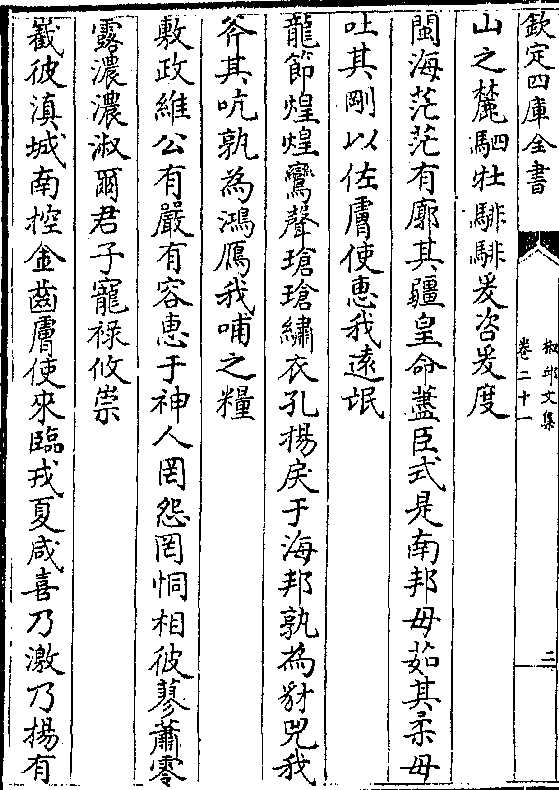 欽定四庫全書
椒邱文集
卷二十一
二
山之麓駟牡騑騑爰咨爰度
閩海茫茫有廓其疆皇命藎臣式是南邦毋茹其柔毋
吐其剛以佐膚使惠我遠氓
龍節煌煌鸞聲瑲瑲繡衣孔揚戾于海邦孰為豺兕我
斧其吭孰為鴻鴈我哺之糧
敷政維公有嚴有容惠于神人罔怨罔恫相彼蓼蕭零
露濃濃淑爾君子寵祿攸崇
巀彼滇城南控金齒膚使來臨戎夏咸喜乃激乃揚有